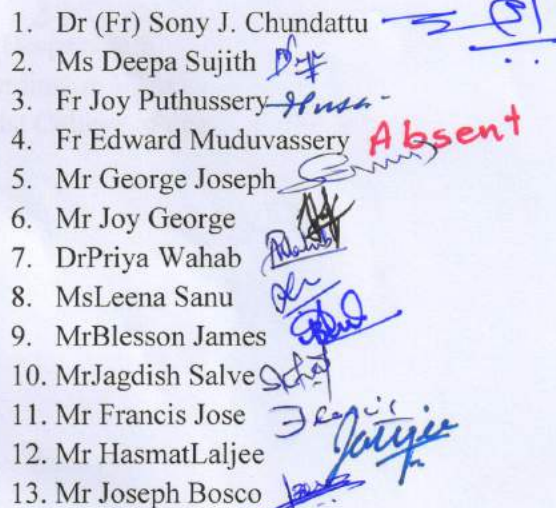 1. Dr (Fr) Sony J. Chundattu
2. Ms Deepa Sujith
3. Fr Joy Puthussery
4. Fr Edward Muduvassery Absent
5. Mr George Joseph
6. Mr Joy George
7. DrPriya Wahab
8. MsLeena Sanu
9. MrBlesson James
10. MrJagdish Salve
11. Mr Francis Jose
12. Mr HasmatLaljee
13. Mr Joseph Bosco